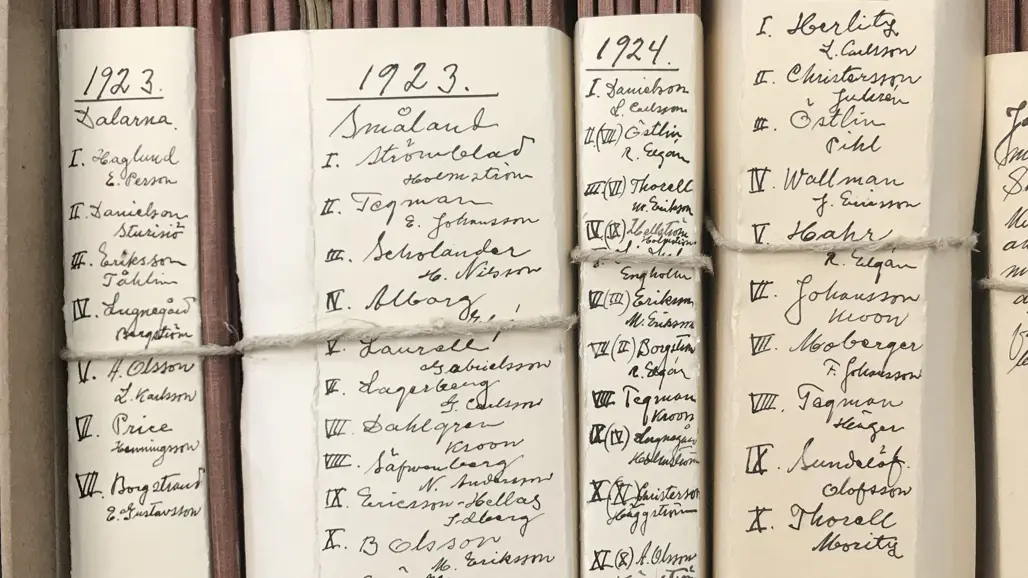 1923.
Dalarna.
I. Haglund
E. Person
II. Danielson
Sturisiö
III. Eriksson
Tåhlin
IV. Lugnegård
Borgström
V. A. Olsson
L. Karlsson
VI. Price
Henningsson
VII. Borgstrand
E. Gustavsson
1923.
Småland
I. Strömblad
Holmström
II. Tegman
E. Johansson
III. Scholander
H. Nilsson
IV. Alborg
V. Laurell
Gabrielsson
VI. Lagerberg
G. Carlsson
VII. Dahlgren
Kroon
VIII. Säfwenberg
N. Andersson
IX. Ericsson-Hellas
Idberg
X. B Olsson
M. Eriksson
1924.
I. Danielson
L. Carlsson
II.(VII) Östlin
R. Edgán
III.(VI) Thorell
M. Erikson
IV.(IX) Hellström
Holmström
Engholm
VI(III) Eriksson
M. Eriksson
VII.(II) Borgström
R. Edgán
VIII. Tegman
Kroon
IX(IV) Lugnegård
Holmström
Häggström
XI.(X) A. Olsson
I. Herlitz
L. Carlsson
II. Christersson
Julrén
III. Östlin
Pihl
IV. Wallman
J. Ericsson
V. Hahr
R. Edgán
VI. Johansson
Moon
VII. Moberger
F. Johansson
VIII. Tegman
Häger
IX. Sundelöf.
Olofsson
X. Thorell
Moritz